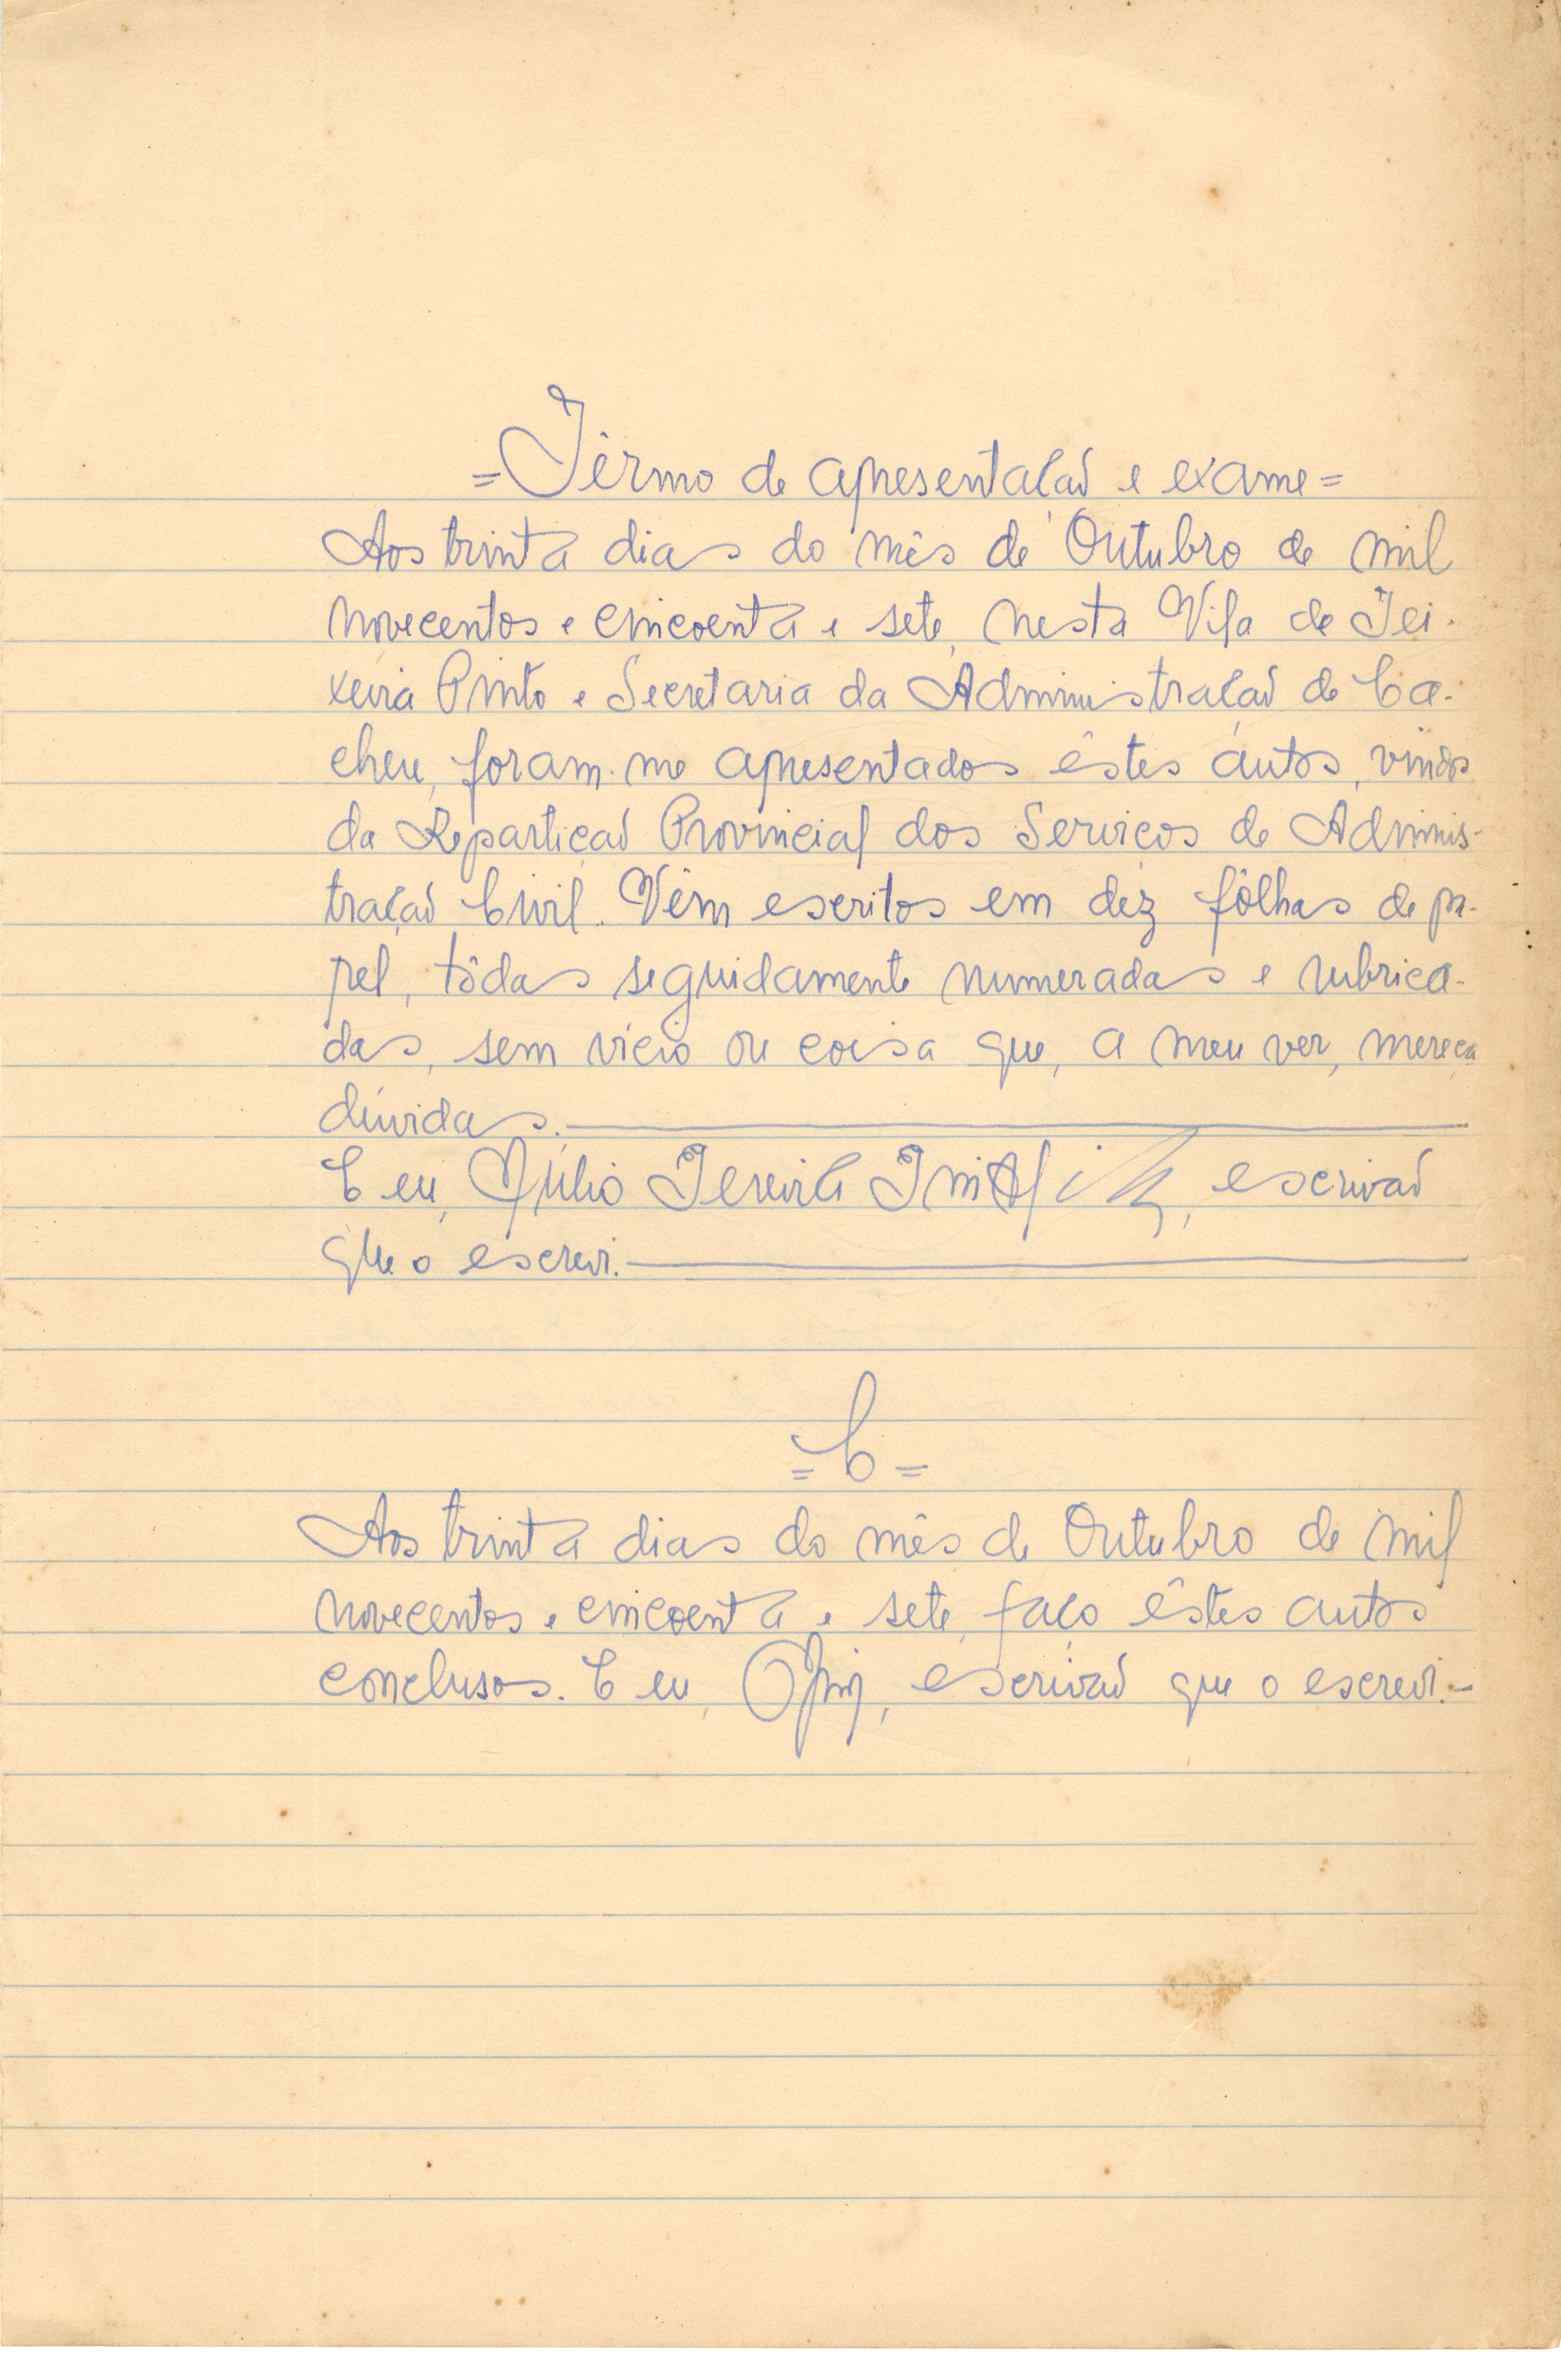 =Têrmo de apresentação e exame=
Aos trinta dias do mês de Outubro de mil
novecentos e cincoenta e sete, nesta Vila de Tei-
xeira Pinto e Secretaria da Administração de Ca-
cheu, foram-me apresentados êstes autos, vindos
da Repartição Provincial dos Serviços de Adminis-
tração Civil. Vêm escritos em dez fôlhas de pa-
pel, tôdas seguidamente numeradas e rubrica-
das, sem vício ou coisa que, a meu ver, mereça
dúvidas.
E eu, Júlio, escrivão
que o escrevi.
=C=
Aos trinta dias do mês de Outubro de mil
novecentos e cincoenta e sete, faço êstes autos
conclusos. E eu, escrivão que o escrevi.-